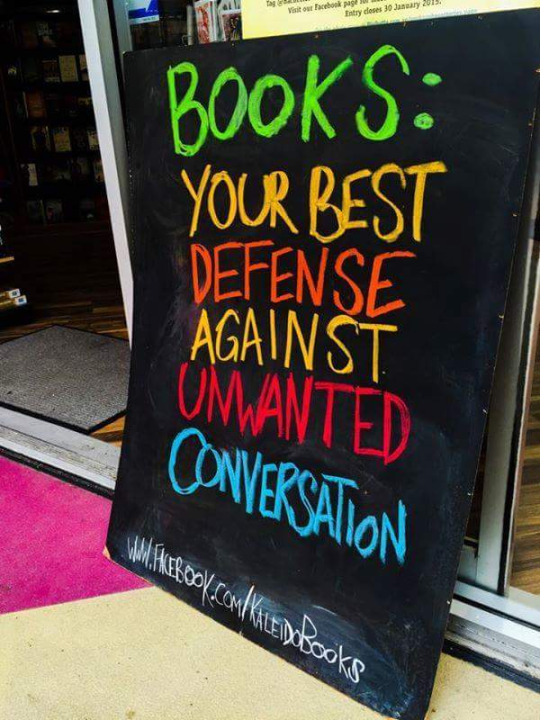 Visit our Facebook page for
Entry closes 30 January 2015.
BOOKS:
YOUR BEST
DEFENSE
AGAINST
UNWANTED
CONVERSATION
WWW.FACEBOOK.COM/KALEIDOBOOKS